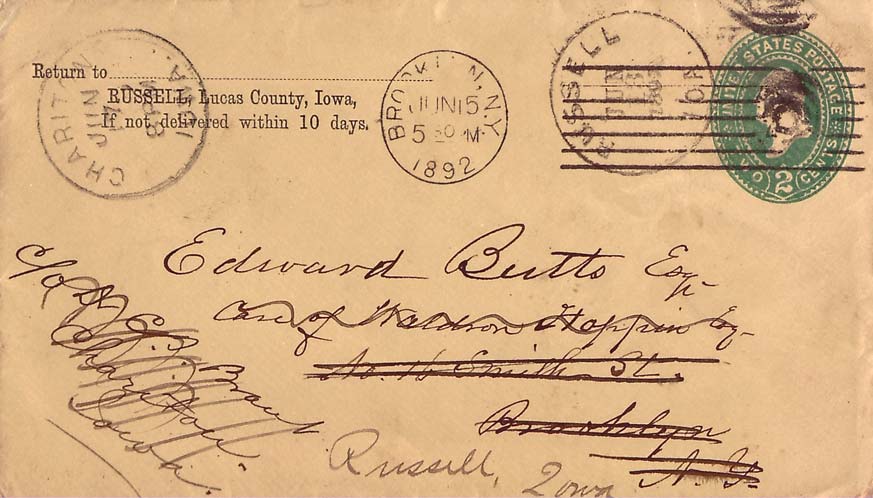 Return to
RUSSELL, Lucas County, Iowa,
If not delivered within 10 days.
CHARITON IOWA
JUN
BROOKLYN, N.Y.
JUN 15
5 30 PM
1892
RUSSELL IOA
JUN
UNITED STATES POSTAGE
TWO 2 CENTS
Edward Butts Esqr
Care of Waldron Hoppin Esq
No. 16 Smith St.
Brooklyn
N.Y.
c/o
Brant
Chariton
Iowa.
Russell, Iowa